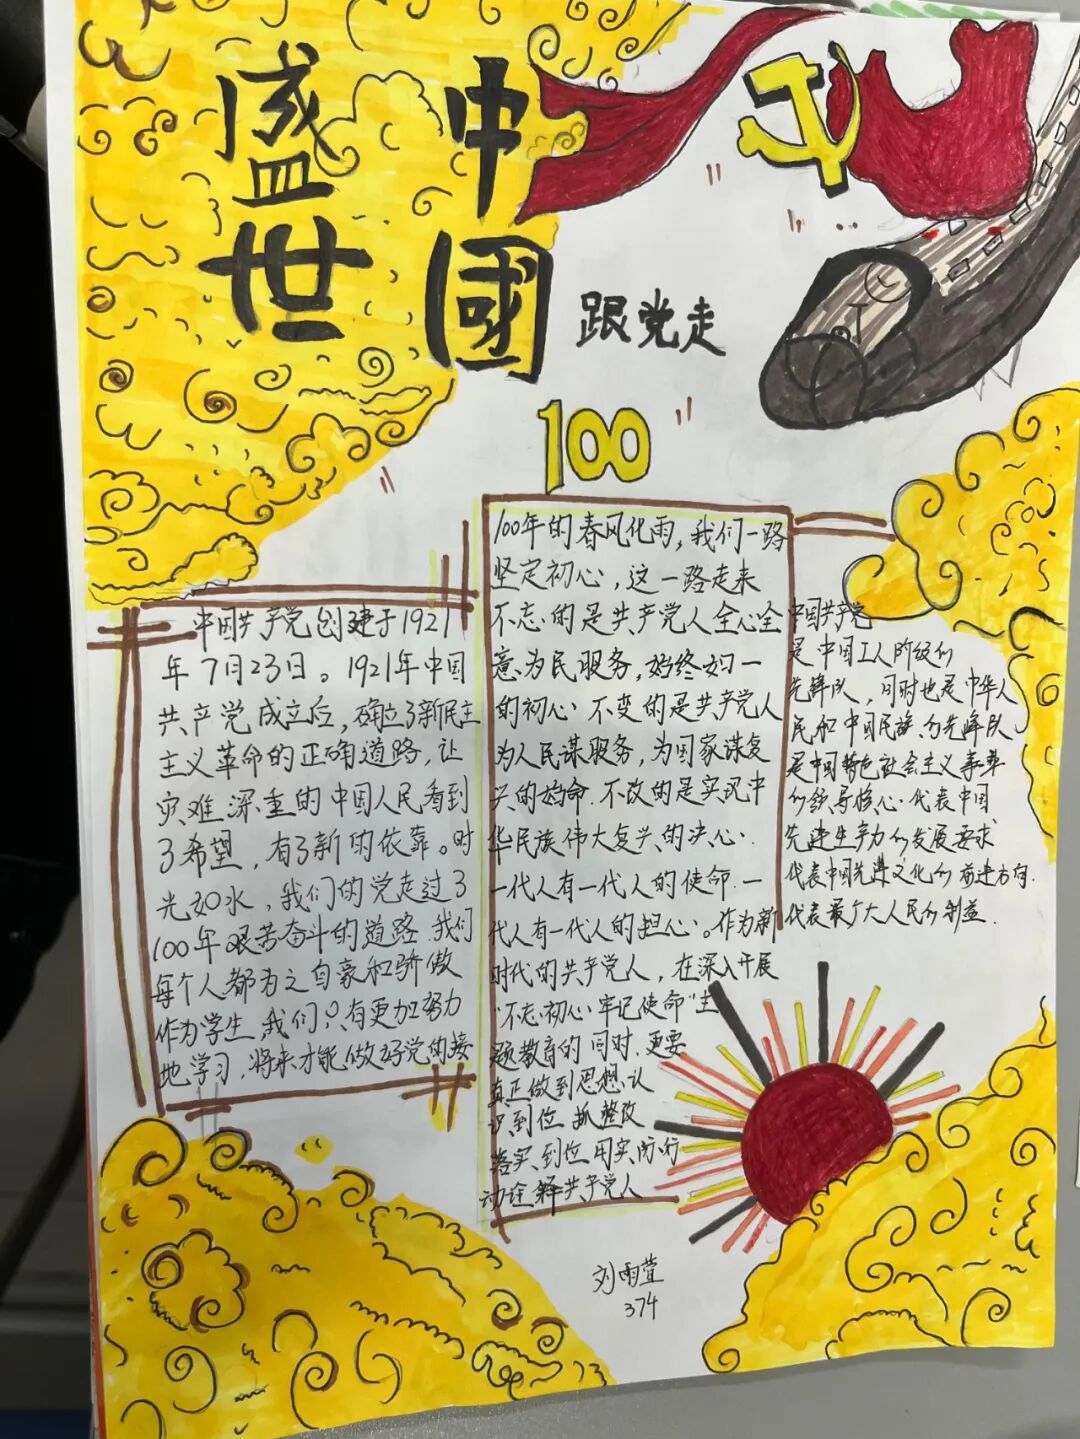 盛世
中國
跟党走
100
中国共产党创建于1921
年7月23日。1921年中国
共产党成立后，确立了新民主
主义革命的正确道路，让
灾难深重的中国人民看到
了希望，有了新的依靠。时
光如水，我们的党走过了
100年艰苦奋斗的道路.我们
每个人都为之自豪和骄傲
作为学生，我们只有更加努力
地学习，将来才能做好党的接
100年的春风化雨，我们一路
坚定初心，这一路走来
不忘的是共产党人全心全
意为民服务，始终如一
的初心.不变的是共产党人
为人民谋服务，为国家谋复
兴的使命.不改的是实现中
华民族伟大复兴的决心.
一代人有一代人的使命.一
代人有一代人的担心。作为新
时代的共产党人，在深入开展
"不忘初心牢记使命"主
题教育的同时.更要
真正做到思想认
识到位 抓整改
落实到位 用实际行
动诠释共产党人
中国共产党
是中国工人阶级的
先锋队，同时也是中华人
民和中国民族的先锋队
是中国特色社会主义事业
的领导核心.代表中国
先进生产力的发展要求
代表中国先进文化的前进方向.
代表最广大人民的利益.
刘雨萱
374